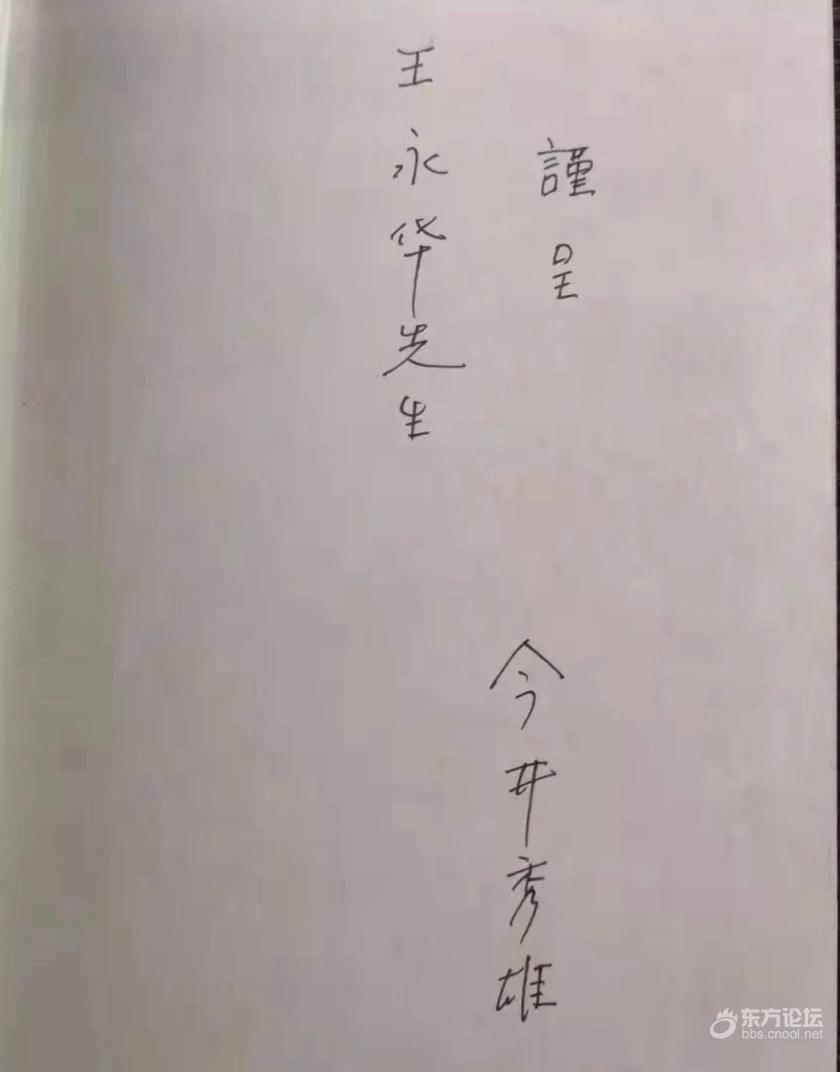 謹呈
王永华先生
今井秀雄
东方论坛
bbs.cnool.net